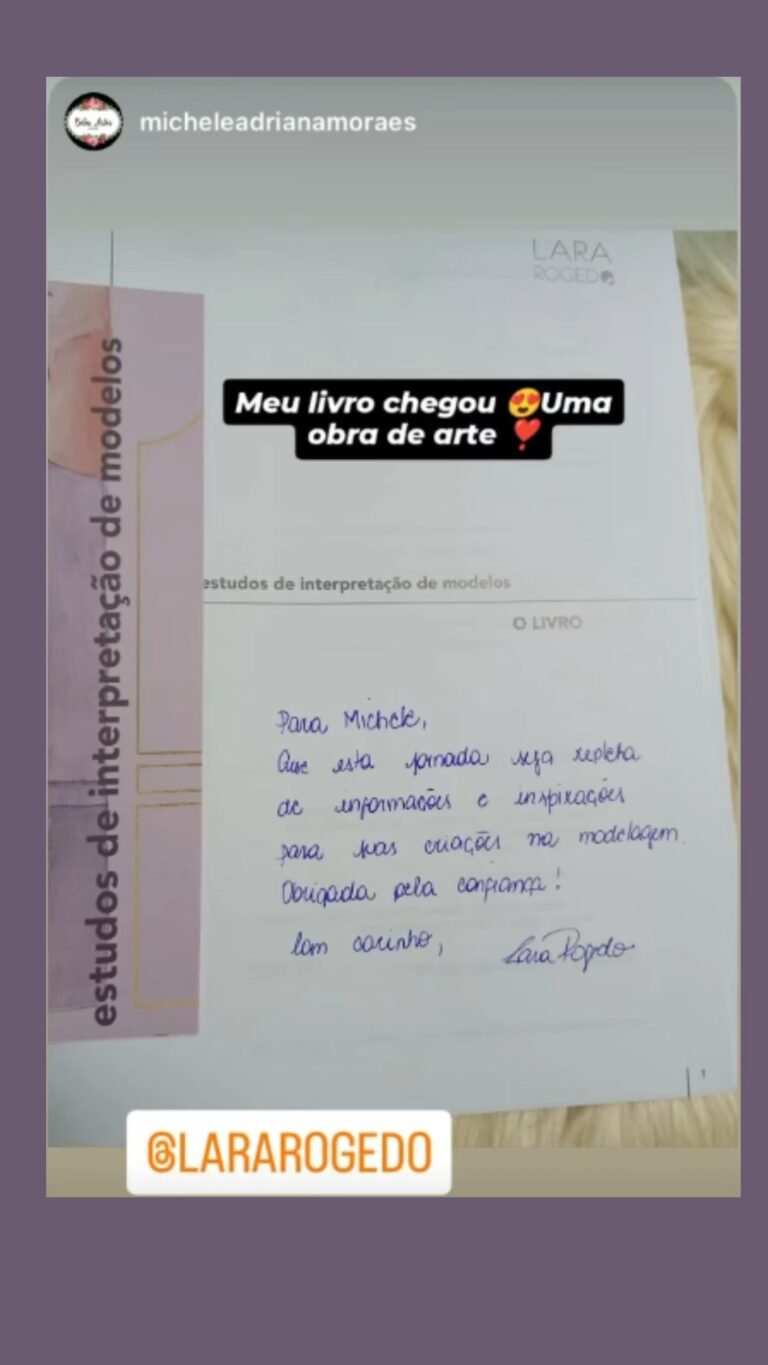 micheleadrianamoraes
LARA
ROGEDO
Meu livro chegou 😍Uma
obra de arte ❣️
estudos de interpretação de modelos
estudos de interpretação de modelos
O LIVRO
Para Michele,
Que esta jornada seja repleta
de informações e inspirações
para suas criações na modelagem.
Obrigada pela confiança!
Com carinho, Lara Rogedo
1
@LARAROGEDO